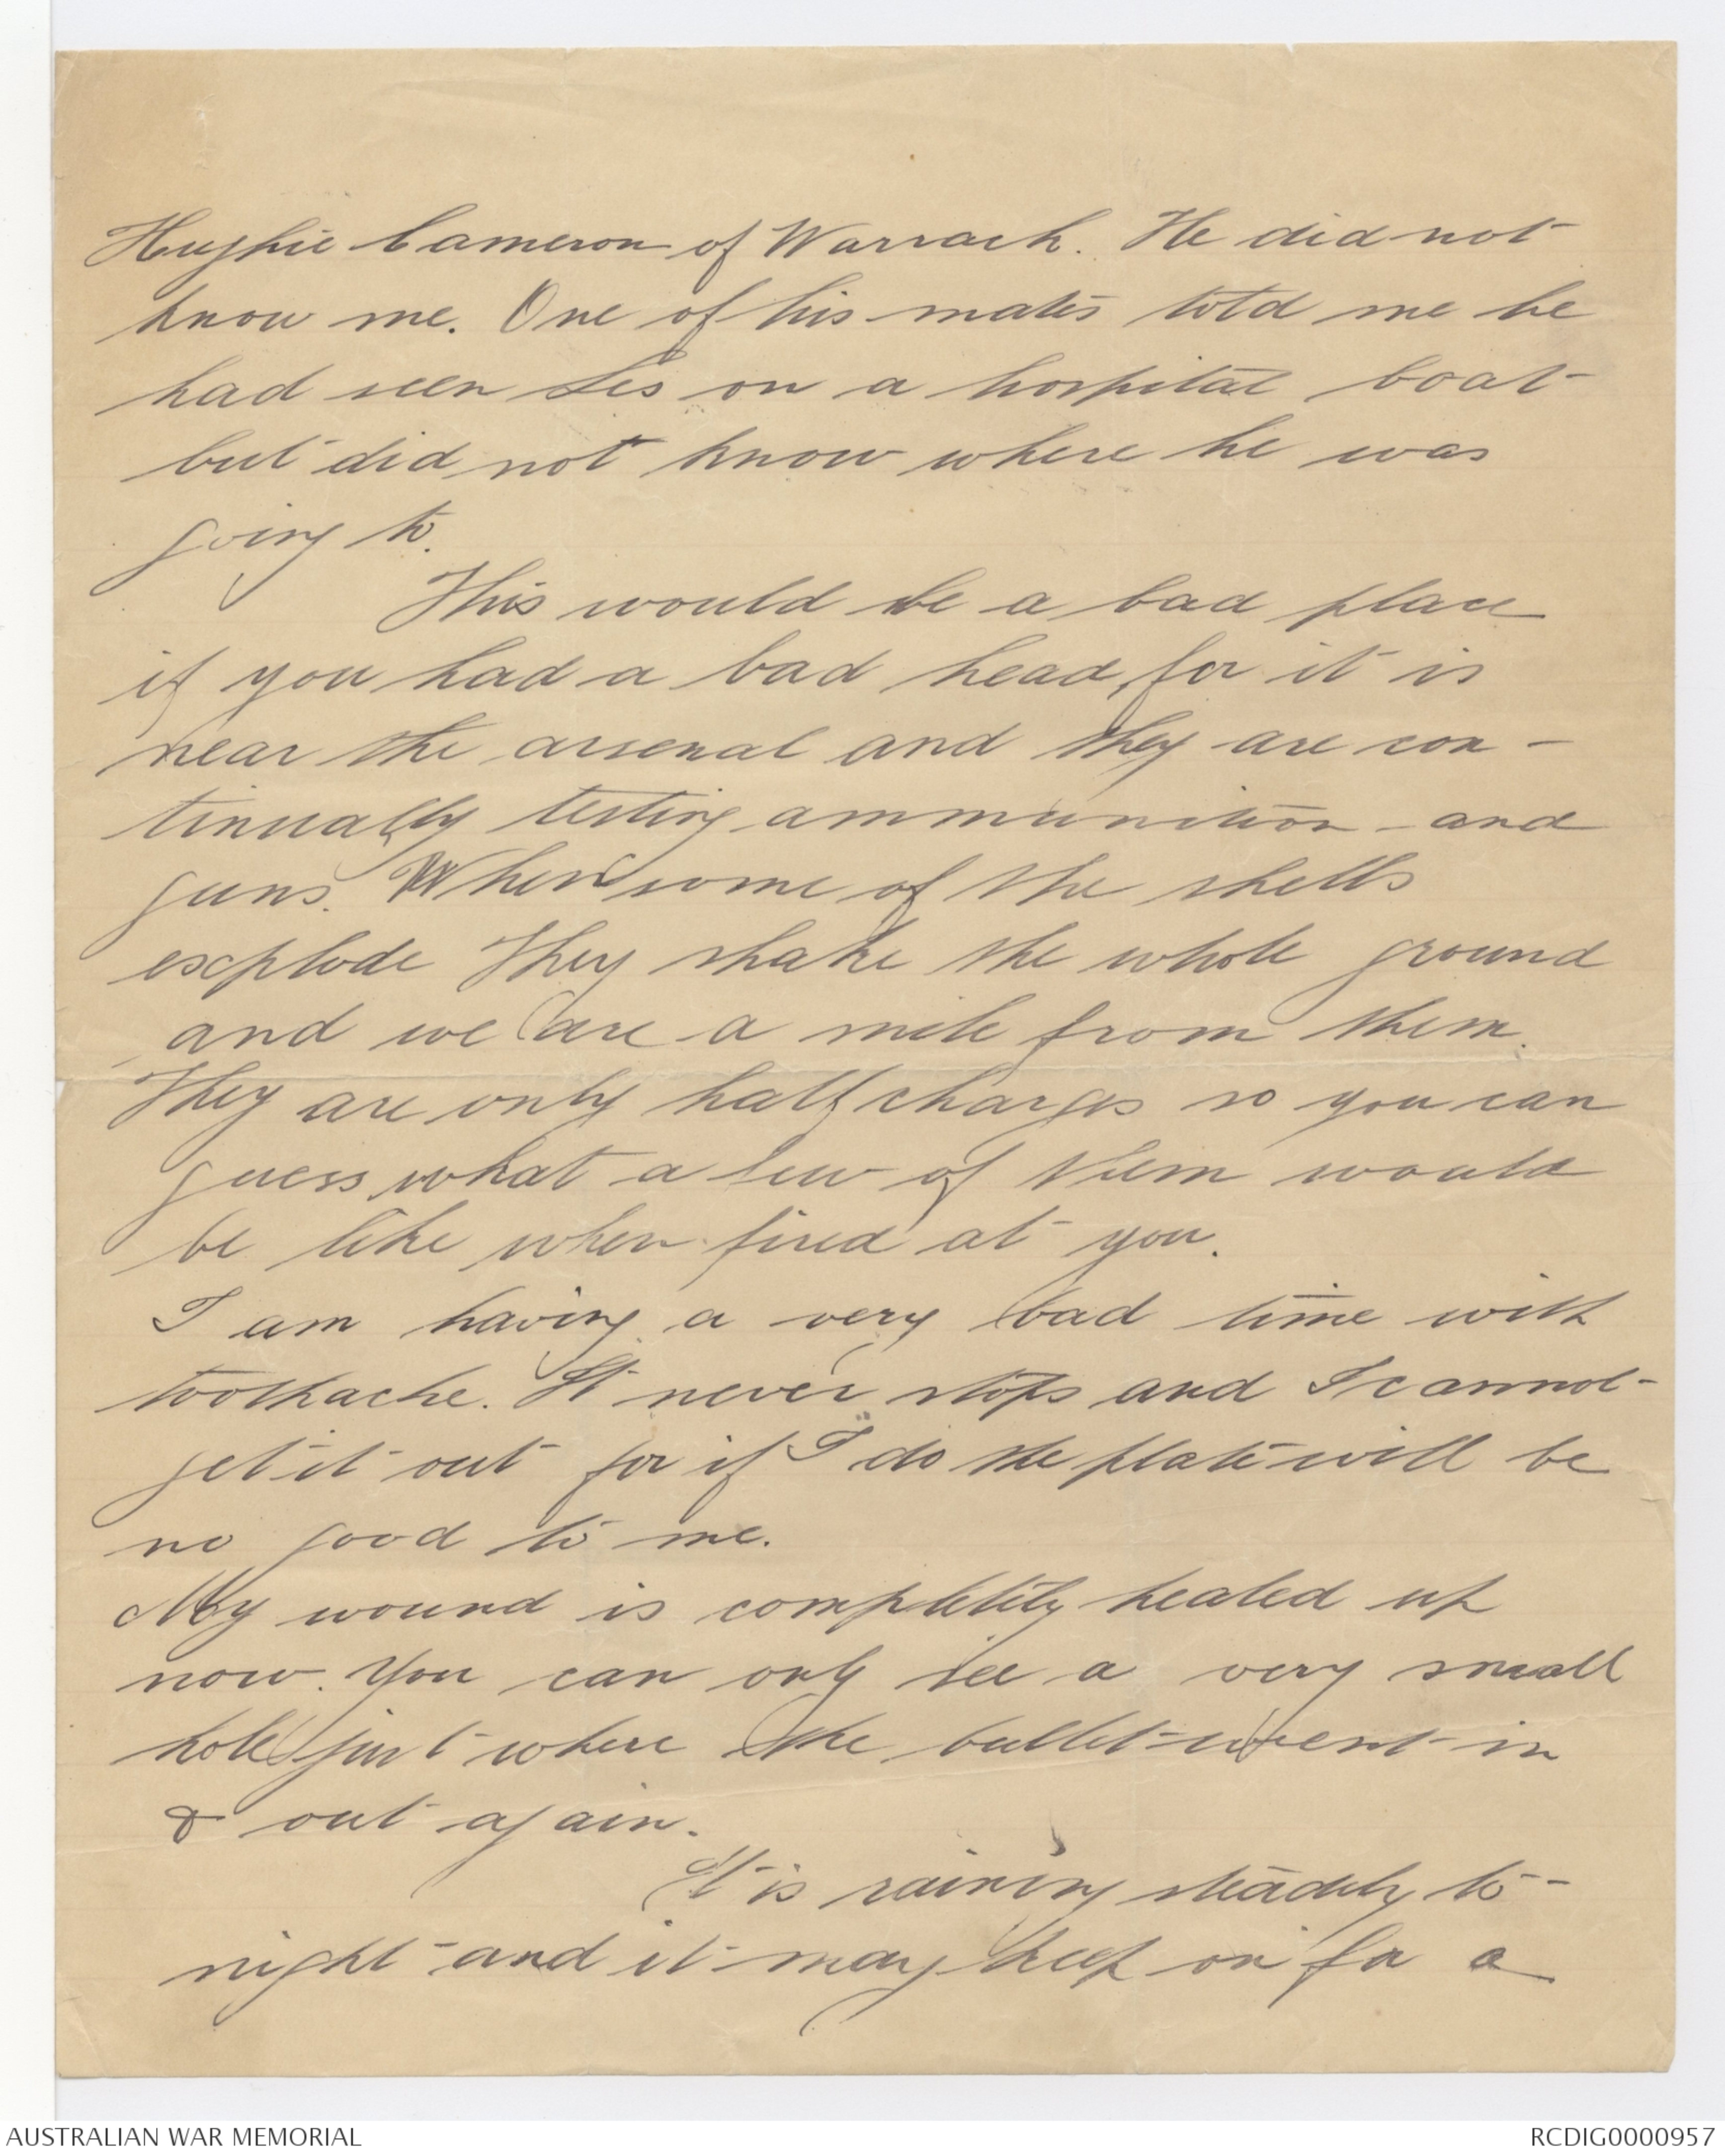 Hughie Cameron of Warrack. He did not
know me. One of his mates told me he
had seen Les on a hospital boat
but did not know where he was
going to.
This would be a bad place
if you had a bad head, for it is
near the arsenal and they are con-
tinually testing ammunition and
guns. When some of the shells
explode they shake the whole ground
and we are a mile from them.
They are only half charges so you can
guess what a few of them would
be like when fired at you.
I am having a very bad time with
toothache. It never stops and I cannot
get it out for if I do the plate will be
no good to me.
My wound is completely healed up
now. You can only see a very small
hole just where the bullet went in
& out again.
It is raining steadily to-
night and it may keep on for a
AUSTRALIAN WAR MEMORIAL
RCDIG0000957